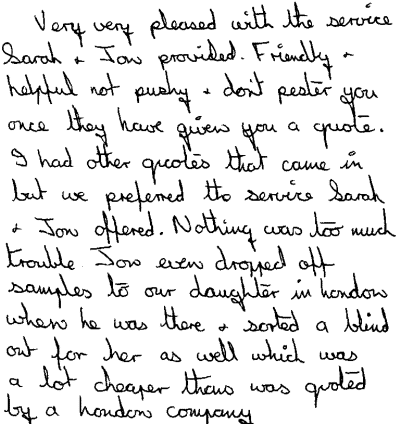 Very very pleased with the service
Sarah + Jon provided. Friendly +
helpful not pushy + don't pester you
once they have given you a quote.
I had other quotes that came in
but we preferred the service Sarah
+ Jon offered. Nothing was too much
trouble Jon even dropped off
samples to our daughter in London
when he was there + sorted a blind
out for her as well which was
a lot cheaper than was quoted
by a London company